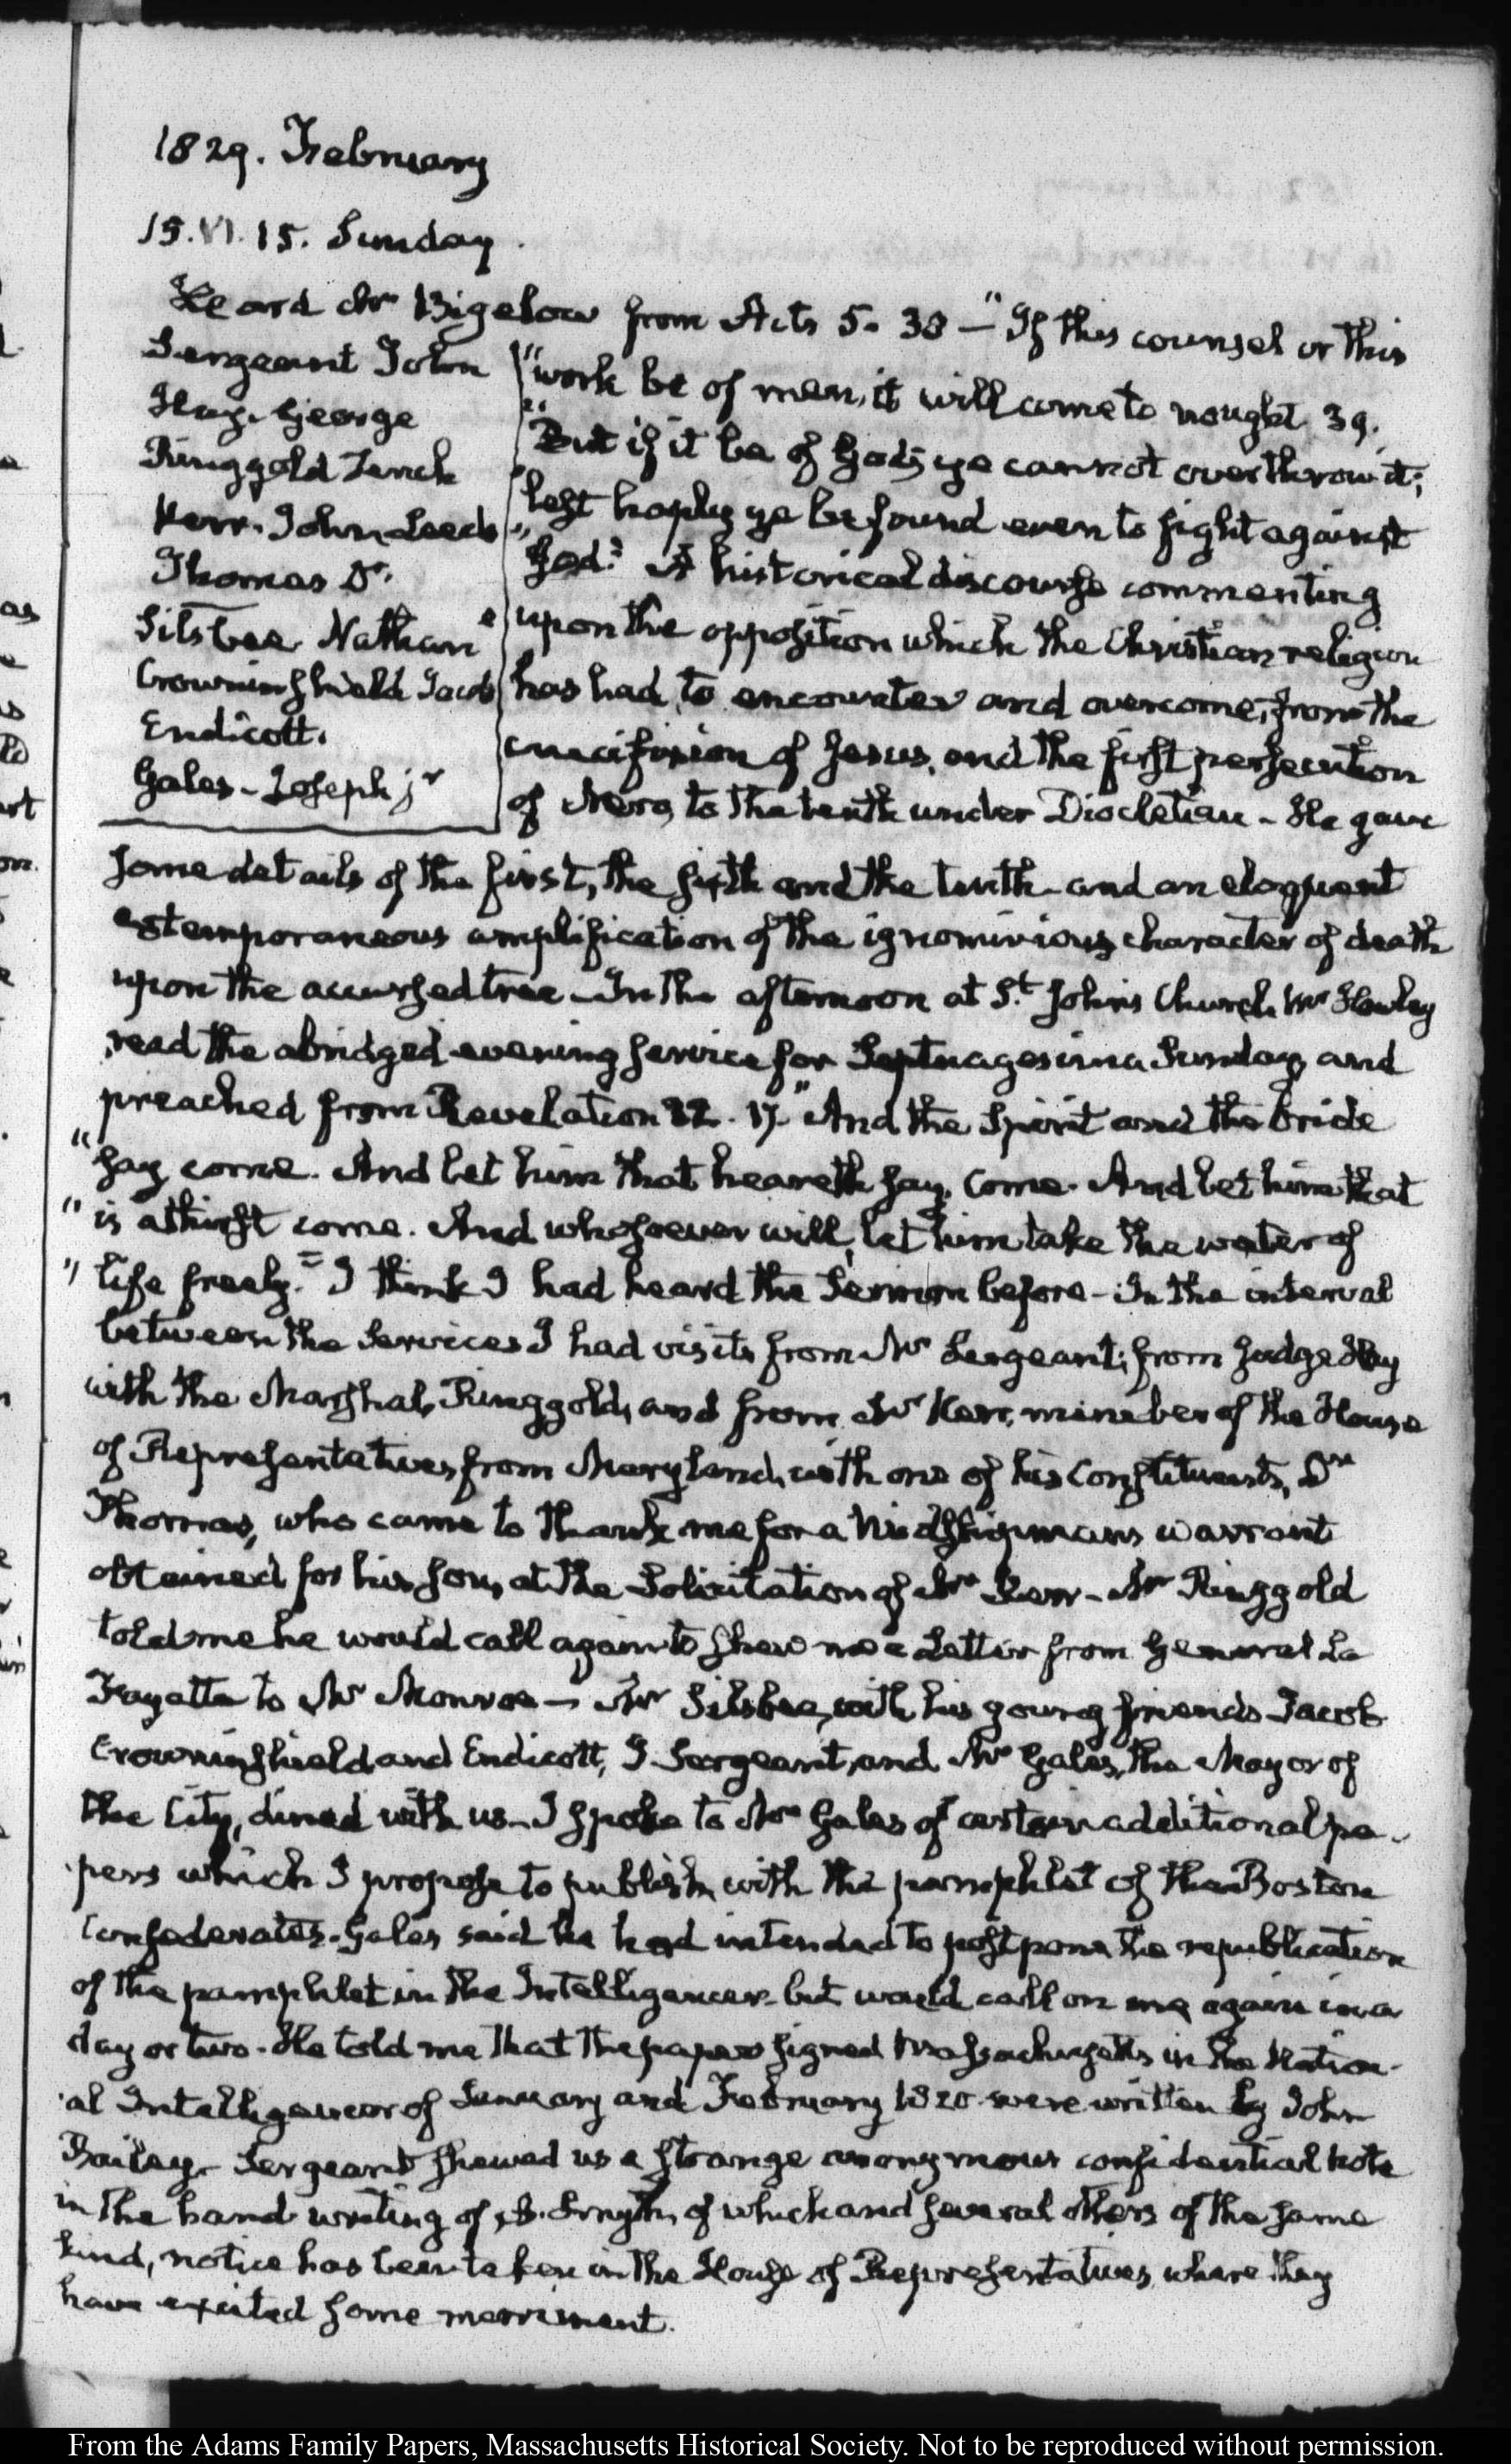 1829. February
15. VI. 15. Sunday.
Heard Mr Bigelow from Acts 5. 38 — "If this counsel or this
Sergeant John
Hay. George
Ringgold Tench
Kerr. John Leeds
Thomas Dr.
Silsbee Nathan
Crowninshield Jacob
Endicott.
Gales - Joseph jr
"work be of men, it will come to nought 39.
"But if it be of God, ye cannot overthrow it;
"lest haply ye be found even to fight against
"God." A historical discourse commenting
upon the opposition which the Christian religion
has had to encounter and overcome, from the
crucifixion of Jesus, and the first persecution
of Nero, to the tenth under Diocletian - He gave
some details of the first, the fifth and the tenth - and an eloquent
extemporaneous amplification of the ignominious character of death
upon the accursed tree - In the afternoon at St. John's Church Mr Hawley
read the abridged evening service for Septuagesima Sunday, and
preached from Revelation 22. 17. "And the Spirit and the bride
"say, come. And let him that heareth say, Come. And let him that
"is athirst come. And whosoever will, let him take the water of
"life freely." I think I had heard the Sermon before - In the interval
between the Services I had visits from Mr Sergeant; from Judge Hay
with the Marshal, Ringgold, and from Mr Kerr, member of the House
of Representatives from Maryland, with one of his Constituents, Dr
Thomas, who came to thank me for a Midshipman's warrant
obtained for his son, at the Solicitation of Mr Kerr - Mr Ringgold
told me he would call again to shew me a Letter from General La
Fayette to Mr Monroe - Mr Silsbee, with his young friends Jacob
Crowninshield and Endicott, J. Sergeant, and Mr Gales, the Mayor of
the City, dined with us - I spoke to Mr Gales of certain additional pa-
pers which I propose to publish, with the pamphlet of the Boston
Confederates. Gales said he had intended to postpone the republication
of the pamphlet in the Intelligencer - but would call on me again in a
day or two. He told me that the papers signed Massachusetts in the Nation-
al Intelligencer of January and February 1820 were written by John
Bailey. Sergeant shewed us a strange anonymous confidential Note
in the hand writing of Smyth, of which and several others of the same
kind, notice has been taken in the House of Representatives, where they
have excited some merriment.
From the Adams Family Papers, Massachusetts Historical Society. Not to be reproduced without permission.